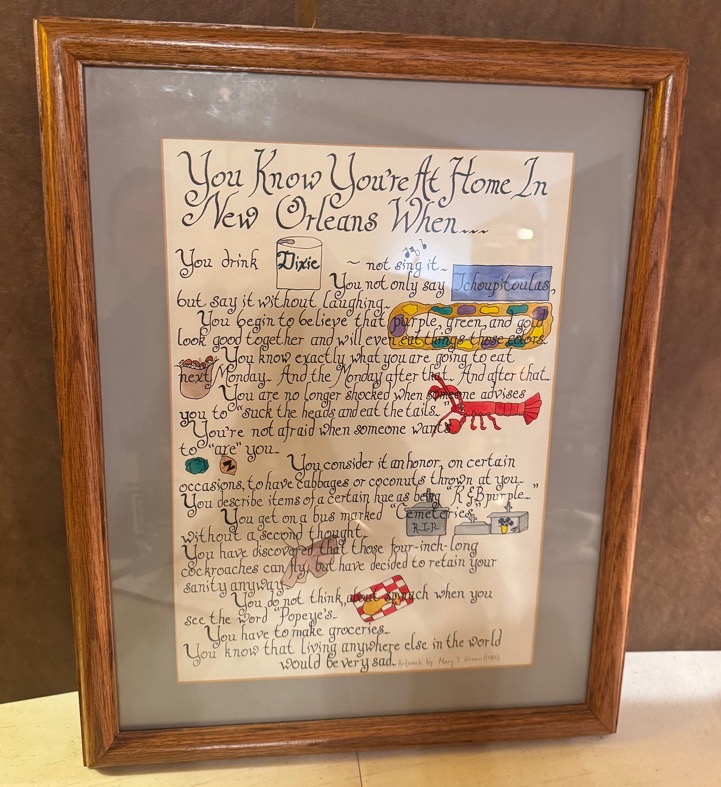 You Know You're At Home In
New Orleans When...
You drink Dixie ~ not sing it.
You not only say Tchoupitoulas,
but say it without laughing.
You begin to believe that purple, green, and gold
look good together and will even eat things those colors.
You know exactly what you are going to eat
next Monday. And the Monday after that. And after that.
You are no longer shocked when someone advises
you to "suck the heads and eat the tails."
You're not afraid when someone wants
to "are" you.
You consider it an honor, on certain
occasions, to have cabbages or coconuts thrown at you.
You describe items of a certain hue as being "K&B purple."
You get on a bus marked "Cemeteries"
R.I.P.
without a second thought.
You have discovered that those four-inch-long
cockroaches can fly, but have decided to retain your
sanity anyway.
You do not think about spinach when you
see the word "Popeye's.
You have to make groceries.
You know that living anywhere else in the world
would be very sad. Artwork by Mary T.